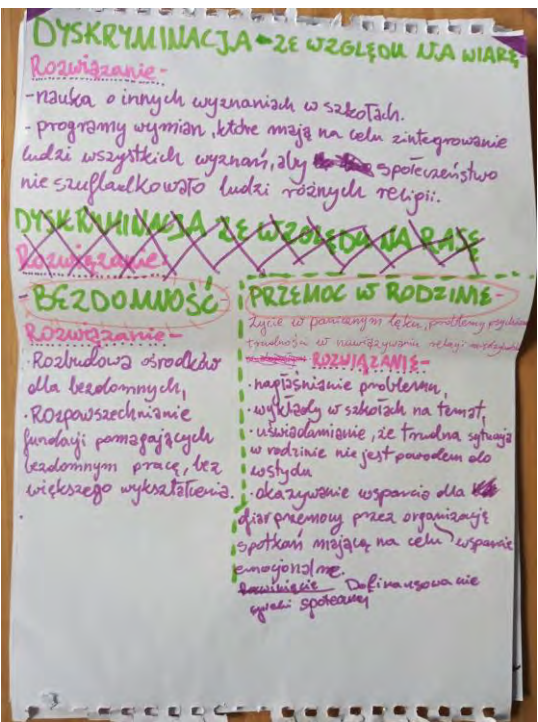 DYSKRYMINACJA - ZE WZGLĘDU NA WIARĘ
Rozwiązanie -
- nauka o innych wyznaniach w szkołach.
- programy wymian, które mają na celu zintegrowanie
ludzi wszystkich wyznań, aby społeczeństwo
nie szufladkowało ludzi różnych religii.
DYSKRYMINACJA ZE WZGLĘDU NA RASĘ
Rozwiązanie -
- BEZDOMNOŚĆ -
Rozwiązanie -
· Rozbudowa ośrodków
dla bezdomnych,
· Rozpowszechnianie
fundacji pomagających
bezdomnym pracę, bez
większego wykształcenia.
PRZEMOC W RODZINIE -
życie w panicznym lęku, problemy
trudności w nawiązywaniu relacji
ROZWIĄZANIE -
· nagłaśnianie problemu,
· wykłady w szkołach na temat,
· uświadamianie, że trudna sytuacja
w rodzinie nie jest powodem do
wstydu
· okazywanie wsparcia dla
ofiar przemocy przez organizację
spotkań mającą na celu wsparcie
emocjonalne.
Dofinansowanie
społecznej